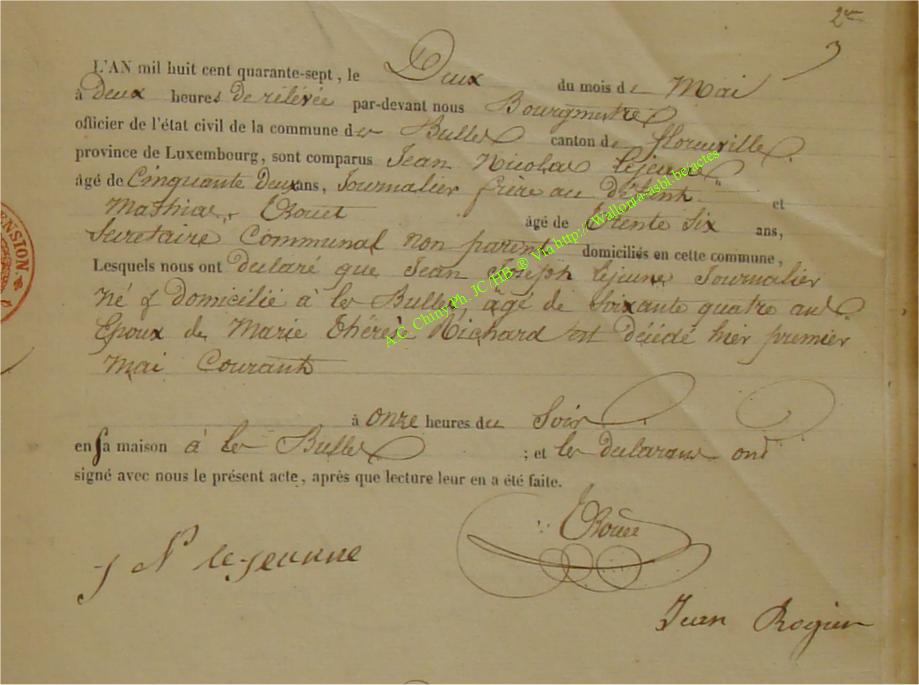 2me
L'AN mil huit cent quarante-sept, le Deux du mois de Mai
à deux heures de rélévée par-devant nous Bourgmestre
officier de l'état civil de la commune des Bulles canton de florenville
province de Luxembourg, sont comparus Jean Nicolas lejeune
âgé de Cinquante Deux ans, Journalier frère au défunt et
Mathias Thouet âgé de Trente Six ans,
Secretaire Communal non parent domiciliés en cette commune,
Lesquels nous ont declaré que Jean Joseph lejeune Journalier
né & domicilié à les Bulles, âgé de Soixante quatre ans
Epoux de Marie thérèse Richard est décédé hier premier
Mai Courant
à onze heures du Soir
en sa maison à les Bulles ; et les declarans ont
signé avec nous le présent acte, après que lecture leur en a été faite.
J N le-jeunne
Jean Rogier
A.C. Chiny Ph. JC /HB ® Via http://Wallonia-asbl be/actes
ENSION